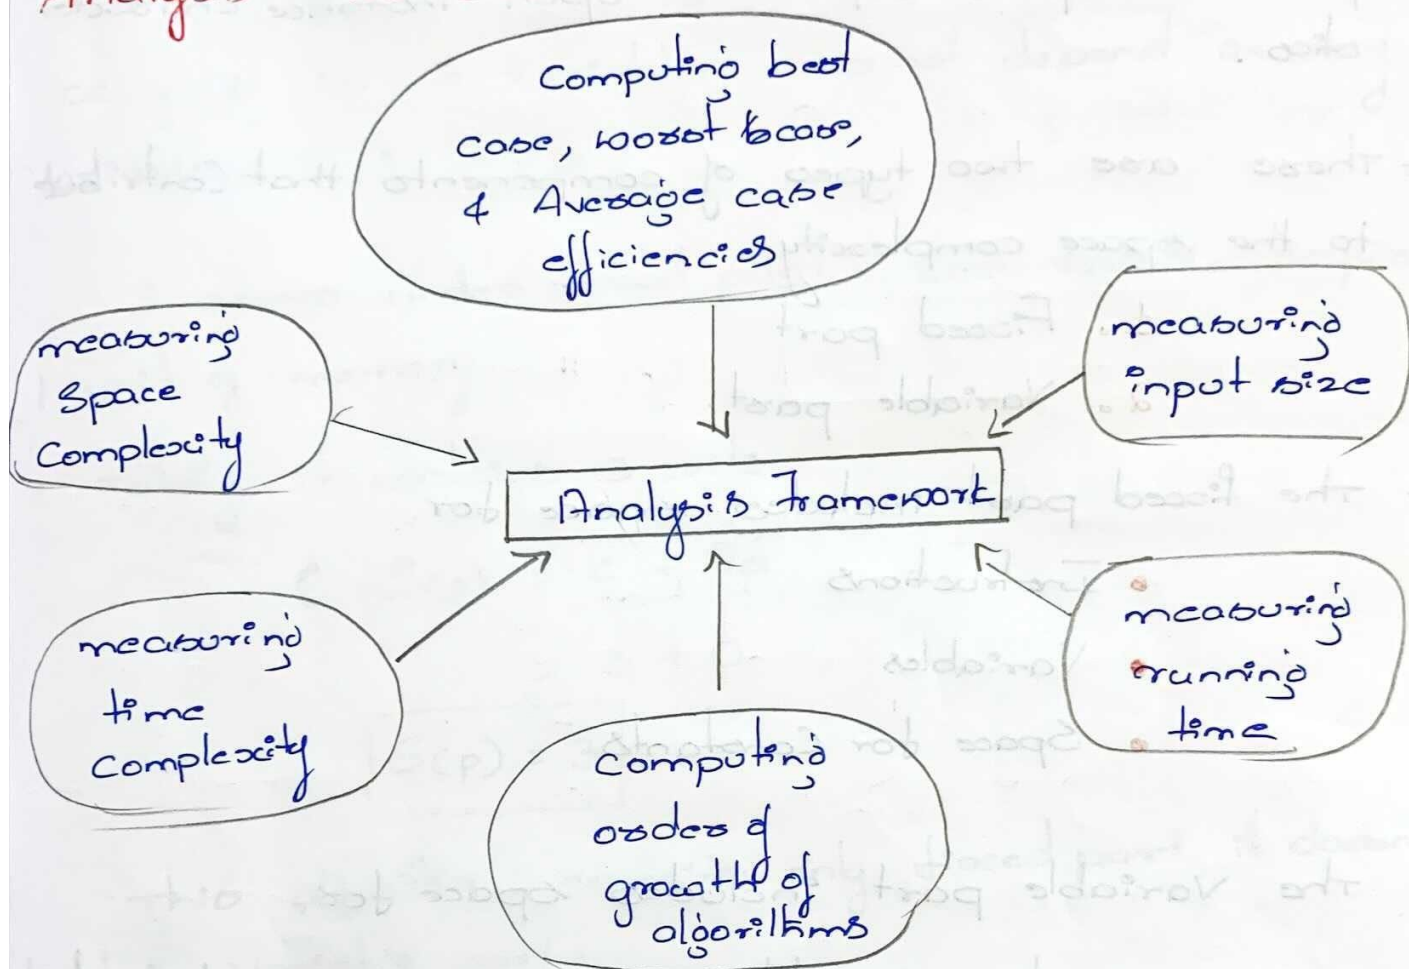 Computing best
case, worst bcase,
& Average case
efficiencies
measuring
Space
Complexity
measuring
input size
Analysis Framework
measuring
time
complexity
measuring
running
time
Computing
order of
growth of
algorithms